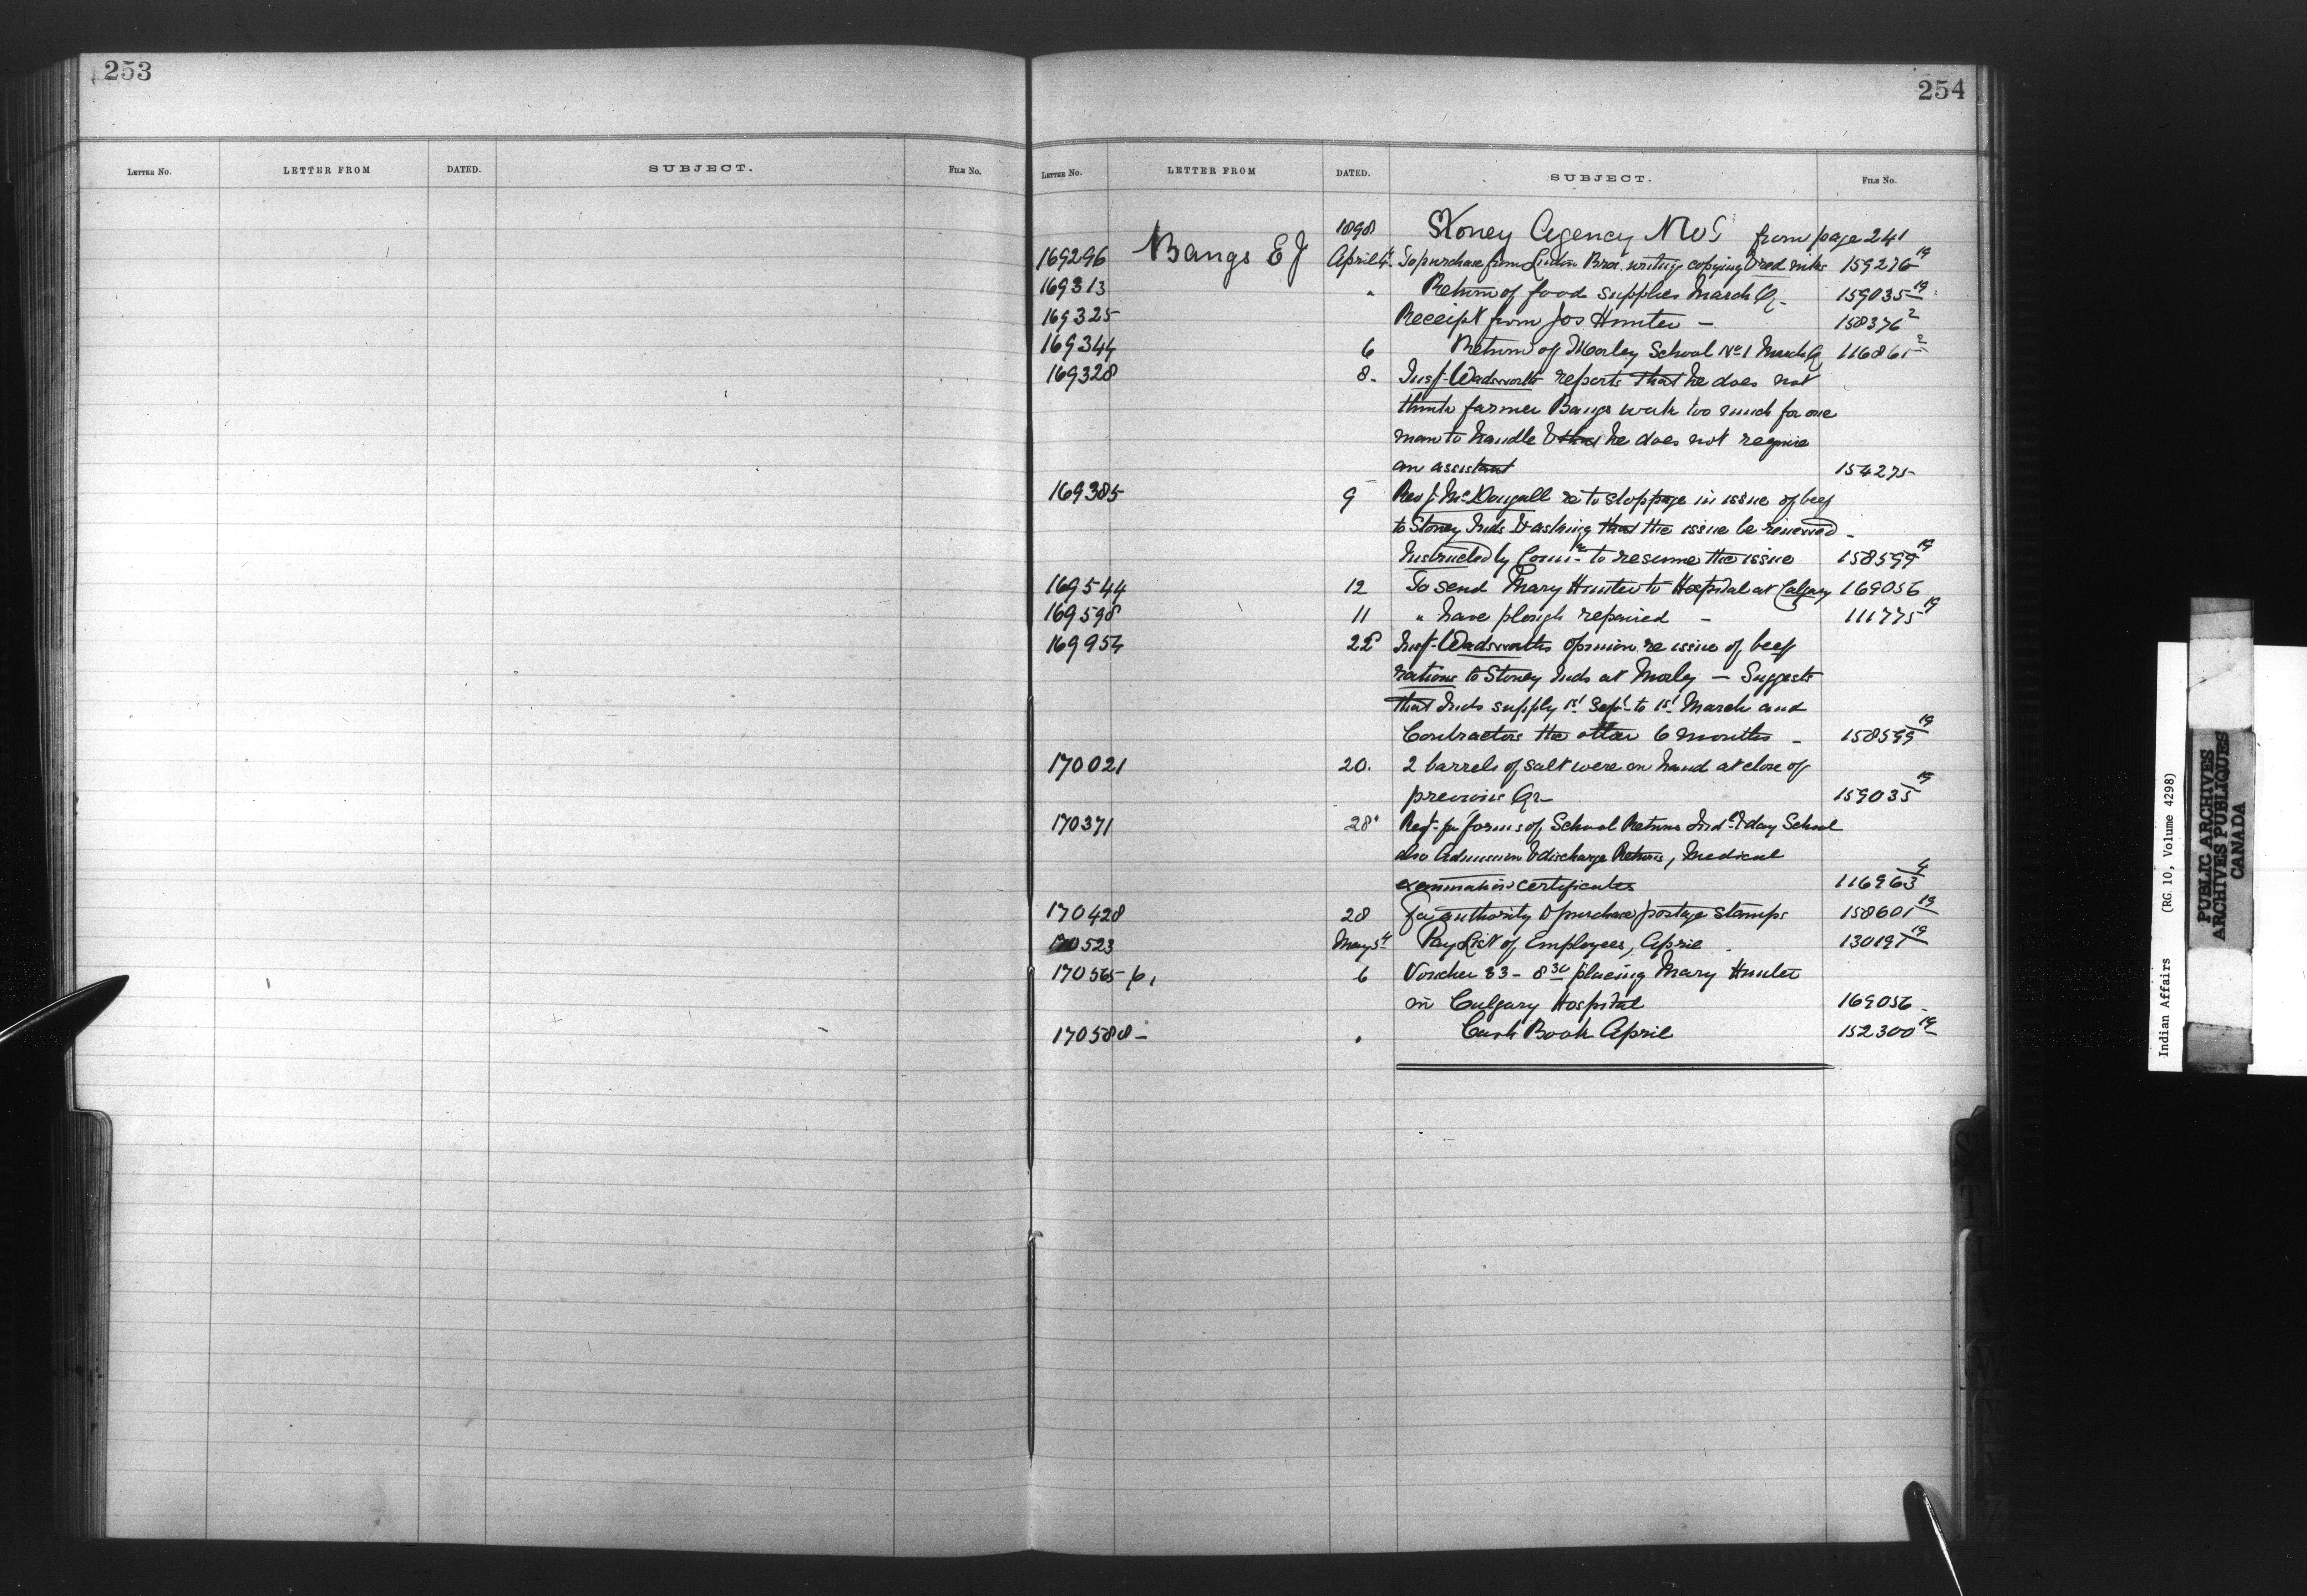 253
LETTER No. LETTER FROM DATED. SUBJECT. FILE No.
254
LETTER No. LETTER FROM DATED. SUBJECT. FILE No.
1898 Stoney Agency NWT from page 241
169296 Bangs E J April 4 To purchase from Linton Bros. writing copying & red inks 159276 19
169313 " Return of food supplies March Qr 159035 19
169325 Receipt from Jos Hunter – 158376 2
169344 6 Return of Morley School No 1 March Q 116861 2
169328 8. Insp. Wadsworth reports that he does not
think farmer Bangs work too much for one
man to handle & that he does not require
an assistant 154275
169385 9 Rev J. McDougall re to stoppage in issue of beef
to Stoney Inds & asking that the issue be renewed –
Instructed by Comr to resume the issue 158599 19
169544 12 To send Mary Hunter to Hospital at Calgary 169056
169598 11 " have plough repaired – 111775 19
169954 22 Insp. Wadsworths opinion re issue of beef
rations to Stoney Inds at Morley – Suggests
that Inds supply 1st Sept to 1st March and
Contractors the other 6 months – 158599 19
170021 20. 2 barrels of salt were on hand at close of
previous Qr 159035 19
170371 28 Req. for forms of School Returns Ind. & day School
also Admission & discharge Returns, Medical
examination certificates 116963 4
170428 28 For authority to purchase postage stamps 158601 19
170523 May 5th Pay List of Employees, April 130191 19
170565 6 Voucher 83 – 8 30 placing Mary Hunter
in Calgary Hospital 169056
170588 – " Cash Book April 152300 19
Indian Affairs (RG 10, Volume 4298)
PUBLIC ARCHIVES
ARCHIVES PUBLIQUES
CANADA